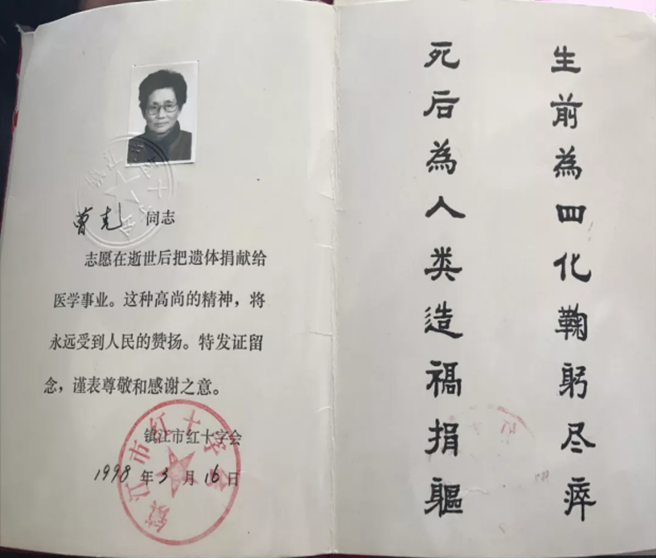 曹克 同志
志愿在逝世后把遗体捐献给
医学事业。这种高尚的精神，将
永远受到人民的赞扬。特发证留
念，谨表尊敬和感谢之意。
镇江市红十字会
1998年3月16日
镇江市红十字会
生前為四化鞠躬尽瘁
死后為人类造福捐軀